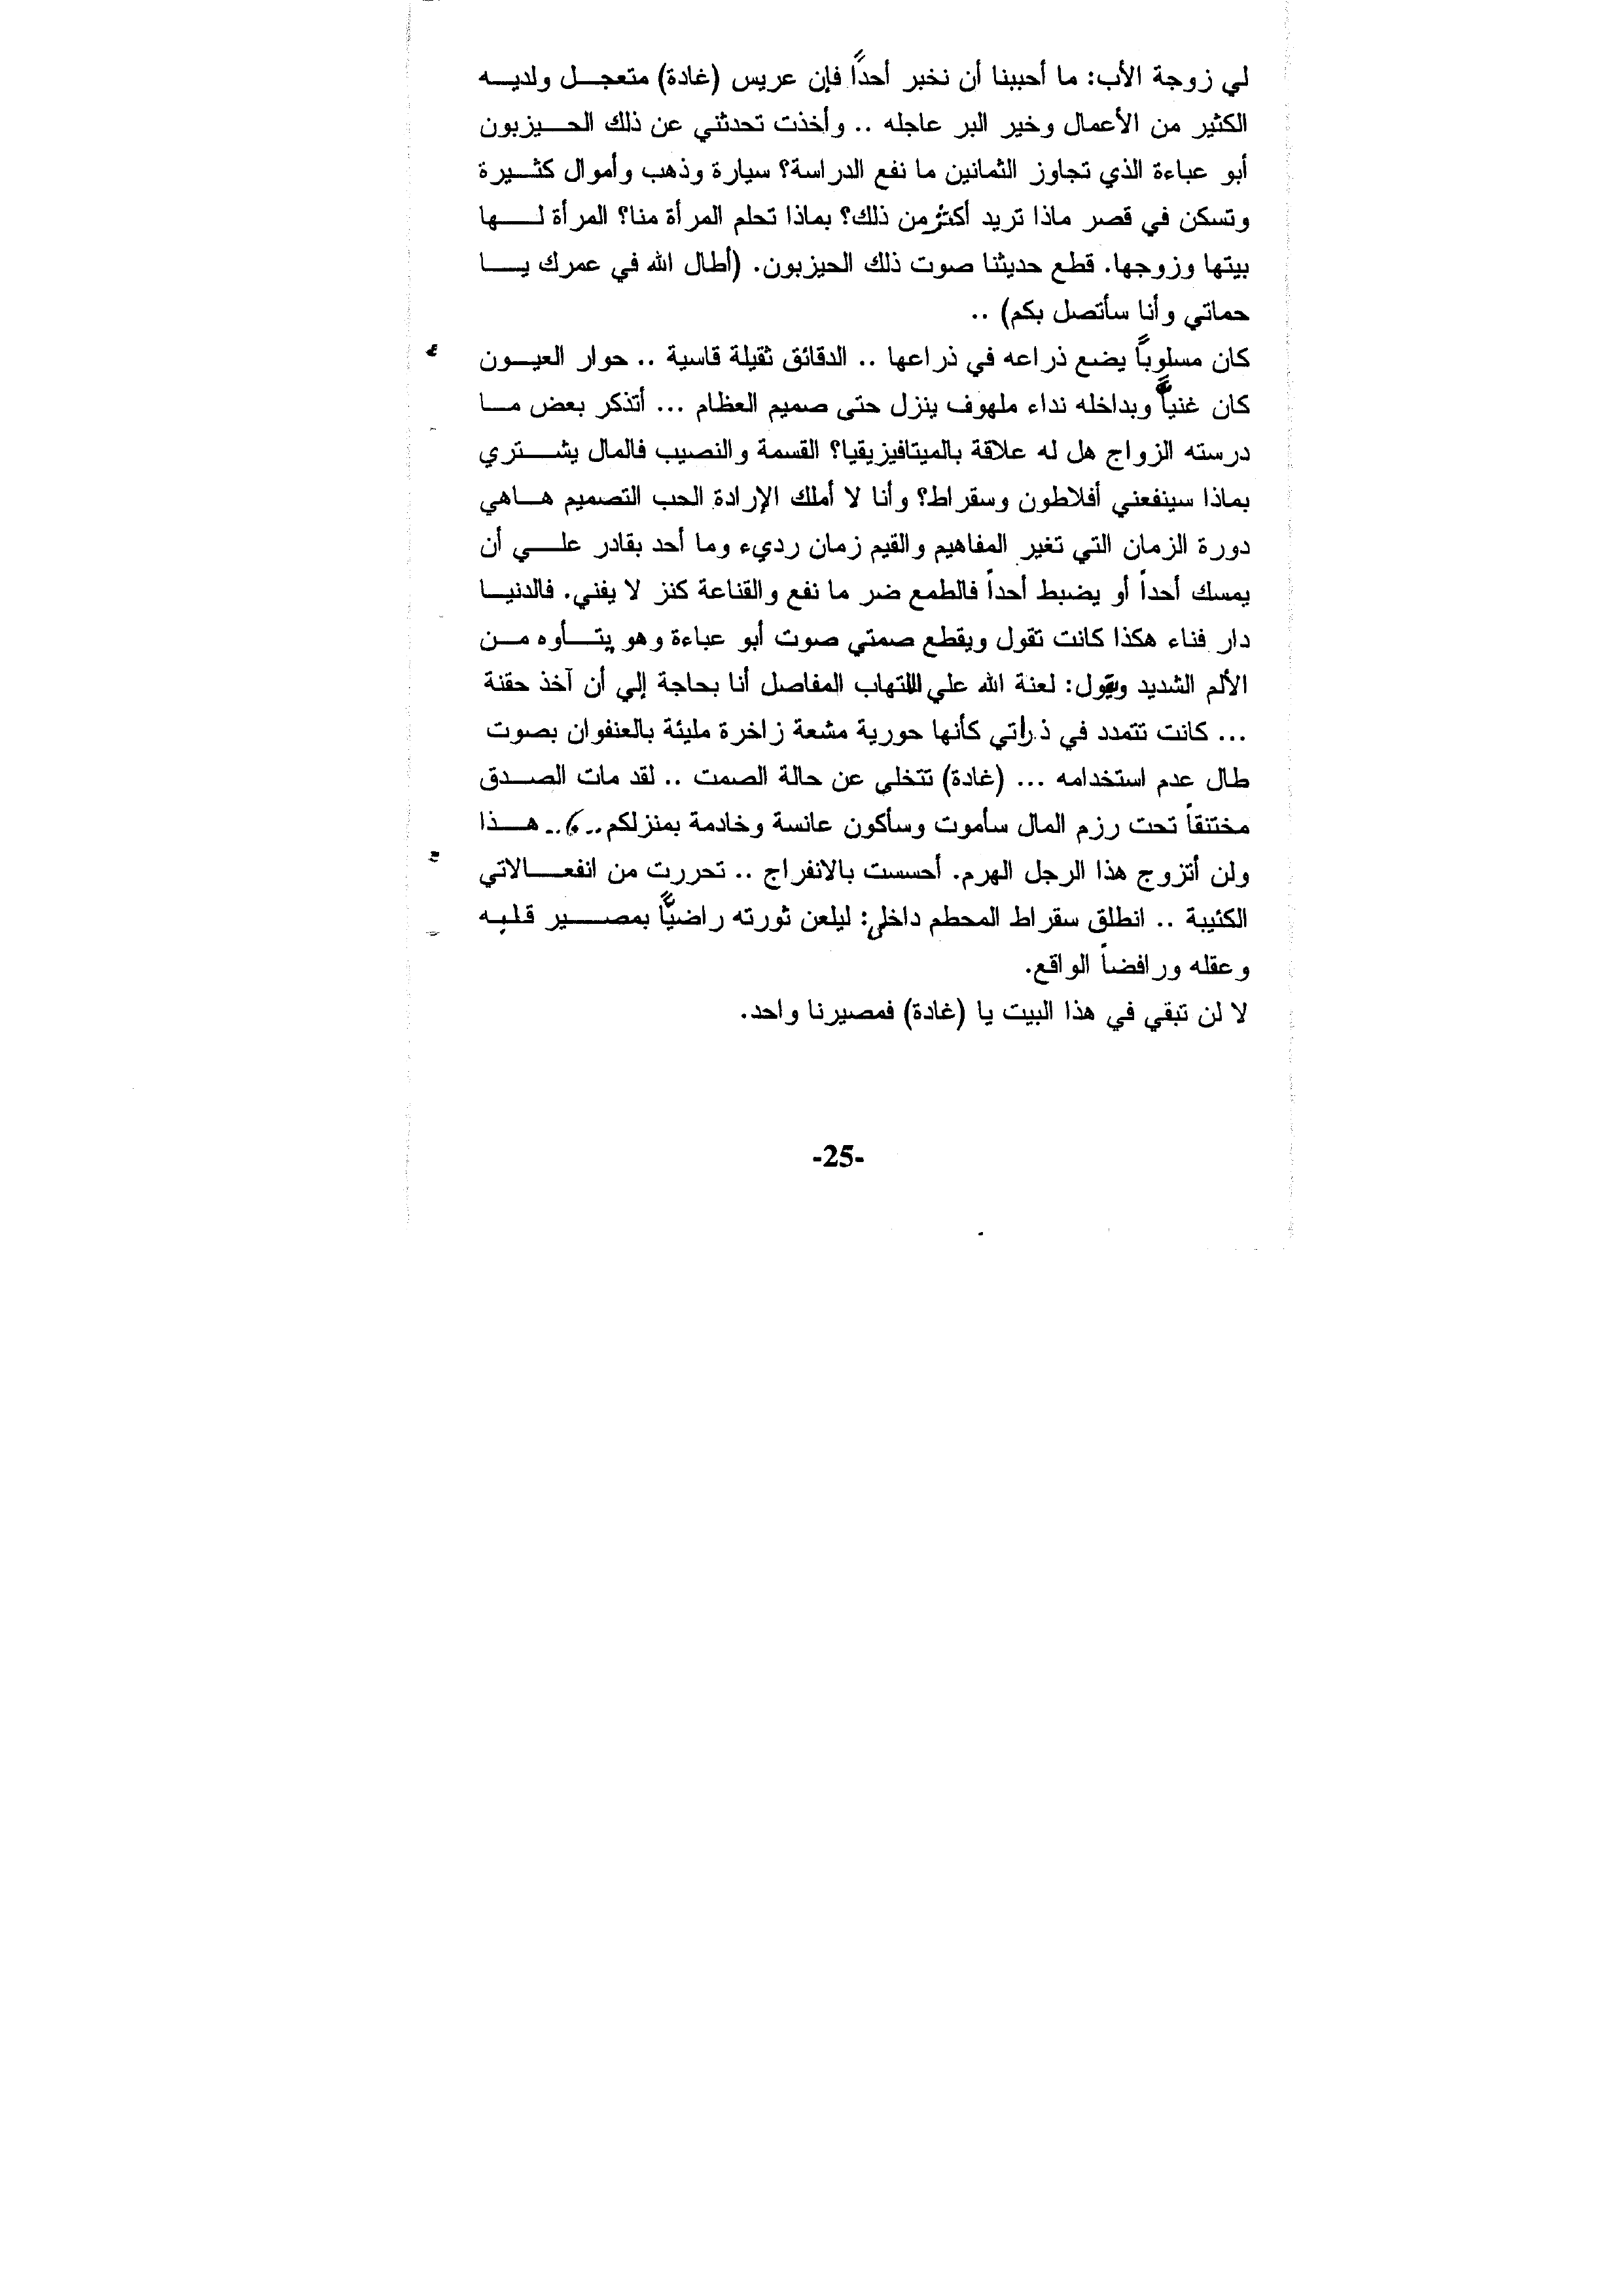 لي زوجة الأب: ما أحببنا أن نخبر أحدًا فإن عريس (غادة) متعجل ولديه
الكثير من الأعمال وخير البر عاجله .. وأخذت تحدثني عن ذلك الحيزبون
أبو عباءة الذي تجاوز الثمانين ما نفع الدراسة؟ سيارة وذهب وأموال كثيرة
وتسكن في قصر ماذا تريد أكثر من ذلك؟ بماذا تحلم المرأة منا؟ المرأة لها
بيتها وزوجها. قطع حديثنا صوت ذلك الحيزبون. (أطال الله في عمرك يا
حماتي وأنا سأتصل بكم) ..
كان مسلوبًا يضع ذراعه في ذراعها .. الدقائق ثقيلة قاسية .. حوار العيون
كان غنياً وبداخله نداء ملهوف ينزل حتى صميم العظام ... أتذكر بعض ما
درسته الزواج هل له علاقة بالميتافيزيقيا؟ القسمة والنصيب فالمال يشتري
بماذا سينفعني أفلاطون وسقراط؟ وأنا لا أملك الإرادة الحب التصميم هاهي
دورة الزمان التي تغير المفاهيم والقيم زمان رديء وما أحد بقادر علي أن
يمسك أحداً أو يضبط أحداً فالطمع ضر ما نفع والقناعة كنز لا يفني. فالدنيا
دار فناء هكذا كانت تقول ويقطع صمتي صوت أبو عباءة وهو يتأوه من
الألم الشديد ويقول: لعنة الله علي التهاب المفاصل أنا بحاجة إلي أن آخذ حقنة
... كانت تتمدد في ذراتي كأنها حورية مشعة زاخرة مليئة بالعنفوان بصوت
طال عدم استخدامه ... (غادة) تتخلي عن حالة الصمت .. لقد مات الصدق
مختنقاً تحت رزم المال سأموت وسأكون عانسة وخادمة بمنزلكم .. هذا
ولن أتزوج هذا الرجل الهرم. أحسست بالانفراج .. تحررت من انفعالاتي
الكئيبة .. انطلق سقراط المحطم داخلي: ليلعن ثورته راضيًا بمصير قلبه
وعقله ورافضاً الواقع.
لا لن تبقي في هذا البيت يا (غادة) فمصيرنا واحد.
-25-